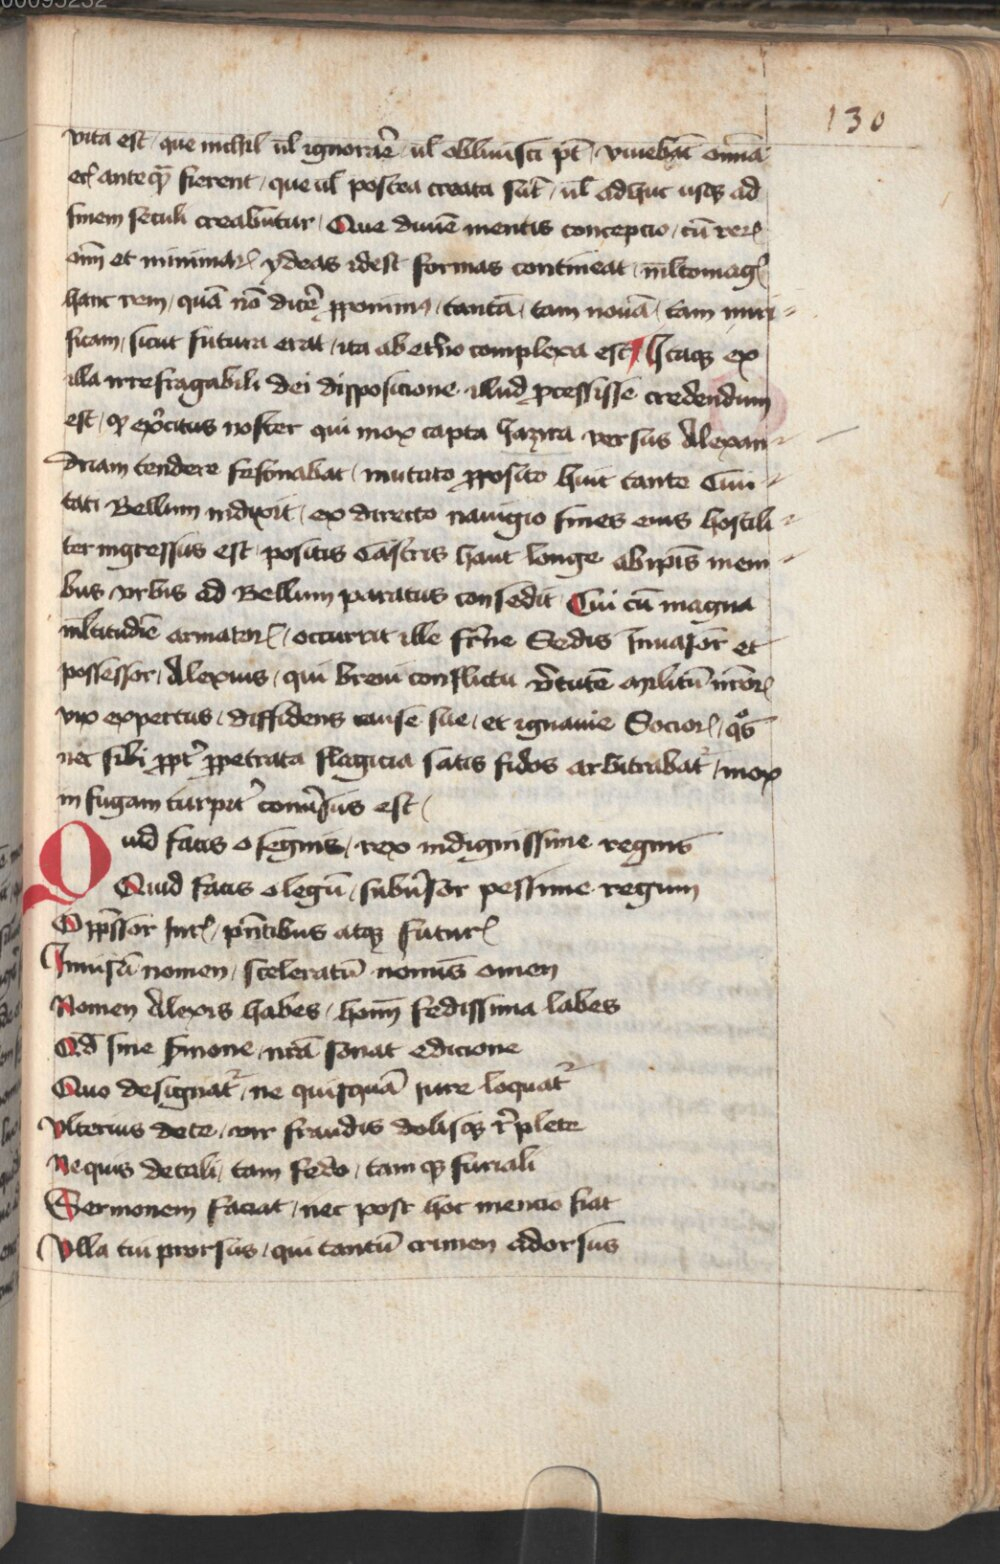 00095232
130
vita est / que nichil ul̄ ignorar̄e / ul̄ obliuisci pt̄ / viuebāt om̄ia
eciā anteq̄ fierent / que ul̄ postea creata sūt / ul̄ adhuc usqꝫ ad
finem seculi creabūtur / Que diuīe mentis concepcio / cū rerꝝ
om̄i et minimarꝝ ydeas idest formas contineat / ml̄tomagꝭ
hanc rem / quā nō dicer̄e ꝓponimꝰ / tantā / tam nouā / tam miri⸗
ficam / sicut futura erat / ita ab et̄no complexa est / Itaqꝫ ex
illa irrefragabili dei disposicione illud ꝓcessisse credendum
est / ꝙ ex̄citus noster qui mox capta Jazira versus Alexan⸗
driam tendere festinabat / mutato ꝓposito huic tante Ciui⸗
tati Bellum indixit / ex directo nauigio fines eius hostili⸗
ter ingressus est / positis Castris haut longe ab ip̄is meni⸗
bus vrbis ad Bellum paratus consedit / Cui cū magna
ml̄titudīe armatorꝝ / occurrit ille fr̄ne Sedis Inuasor̄ et
possessor / Alexius / qui breui conflictu v̄tutē militū nr̄orꝝ
vix expertus / diffidens cause sue / et ignauie Sociorꝝ / qͦs
nec sibi ꝓpt̄ ꝑpetrata flagicia satis fidos arbitrabat᷑ / mox
in fugam turpit̄ conūsus est /
Quid facis o segnis / rex indignissime regnis
Quid facis o legū / subūsor pessime regum
Opp̄ssor Iurꝭ / pn̄tibus atqꝫ futurꝭ
Inuisū nomen / sceleratū nominis omen
Nomen Alexis habes / hoīm fedissima labes
Qd̄ sine s̄mone / nr̄a sonat edicione
Quo designat᷑ / ne quisquā iure loquat᷑
Vlterius de te / vir fraudis dolisqꝫ r̄plete
Ne quis de tali / tam fedo / tam qꝫ furiali
Sermonem faciat / nec post hoc mencio fiat
Vlla tui prorsus / qui tantū crimen adorsus